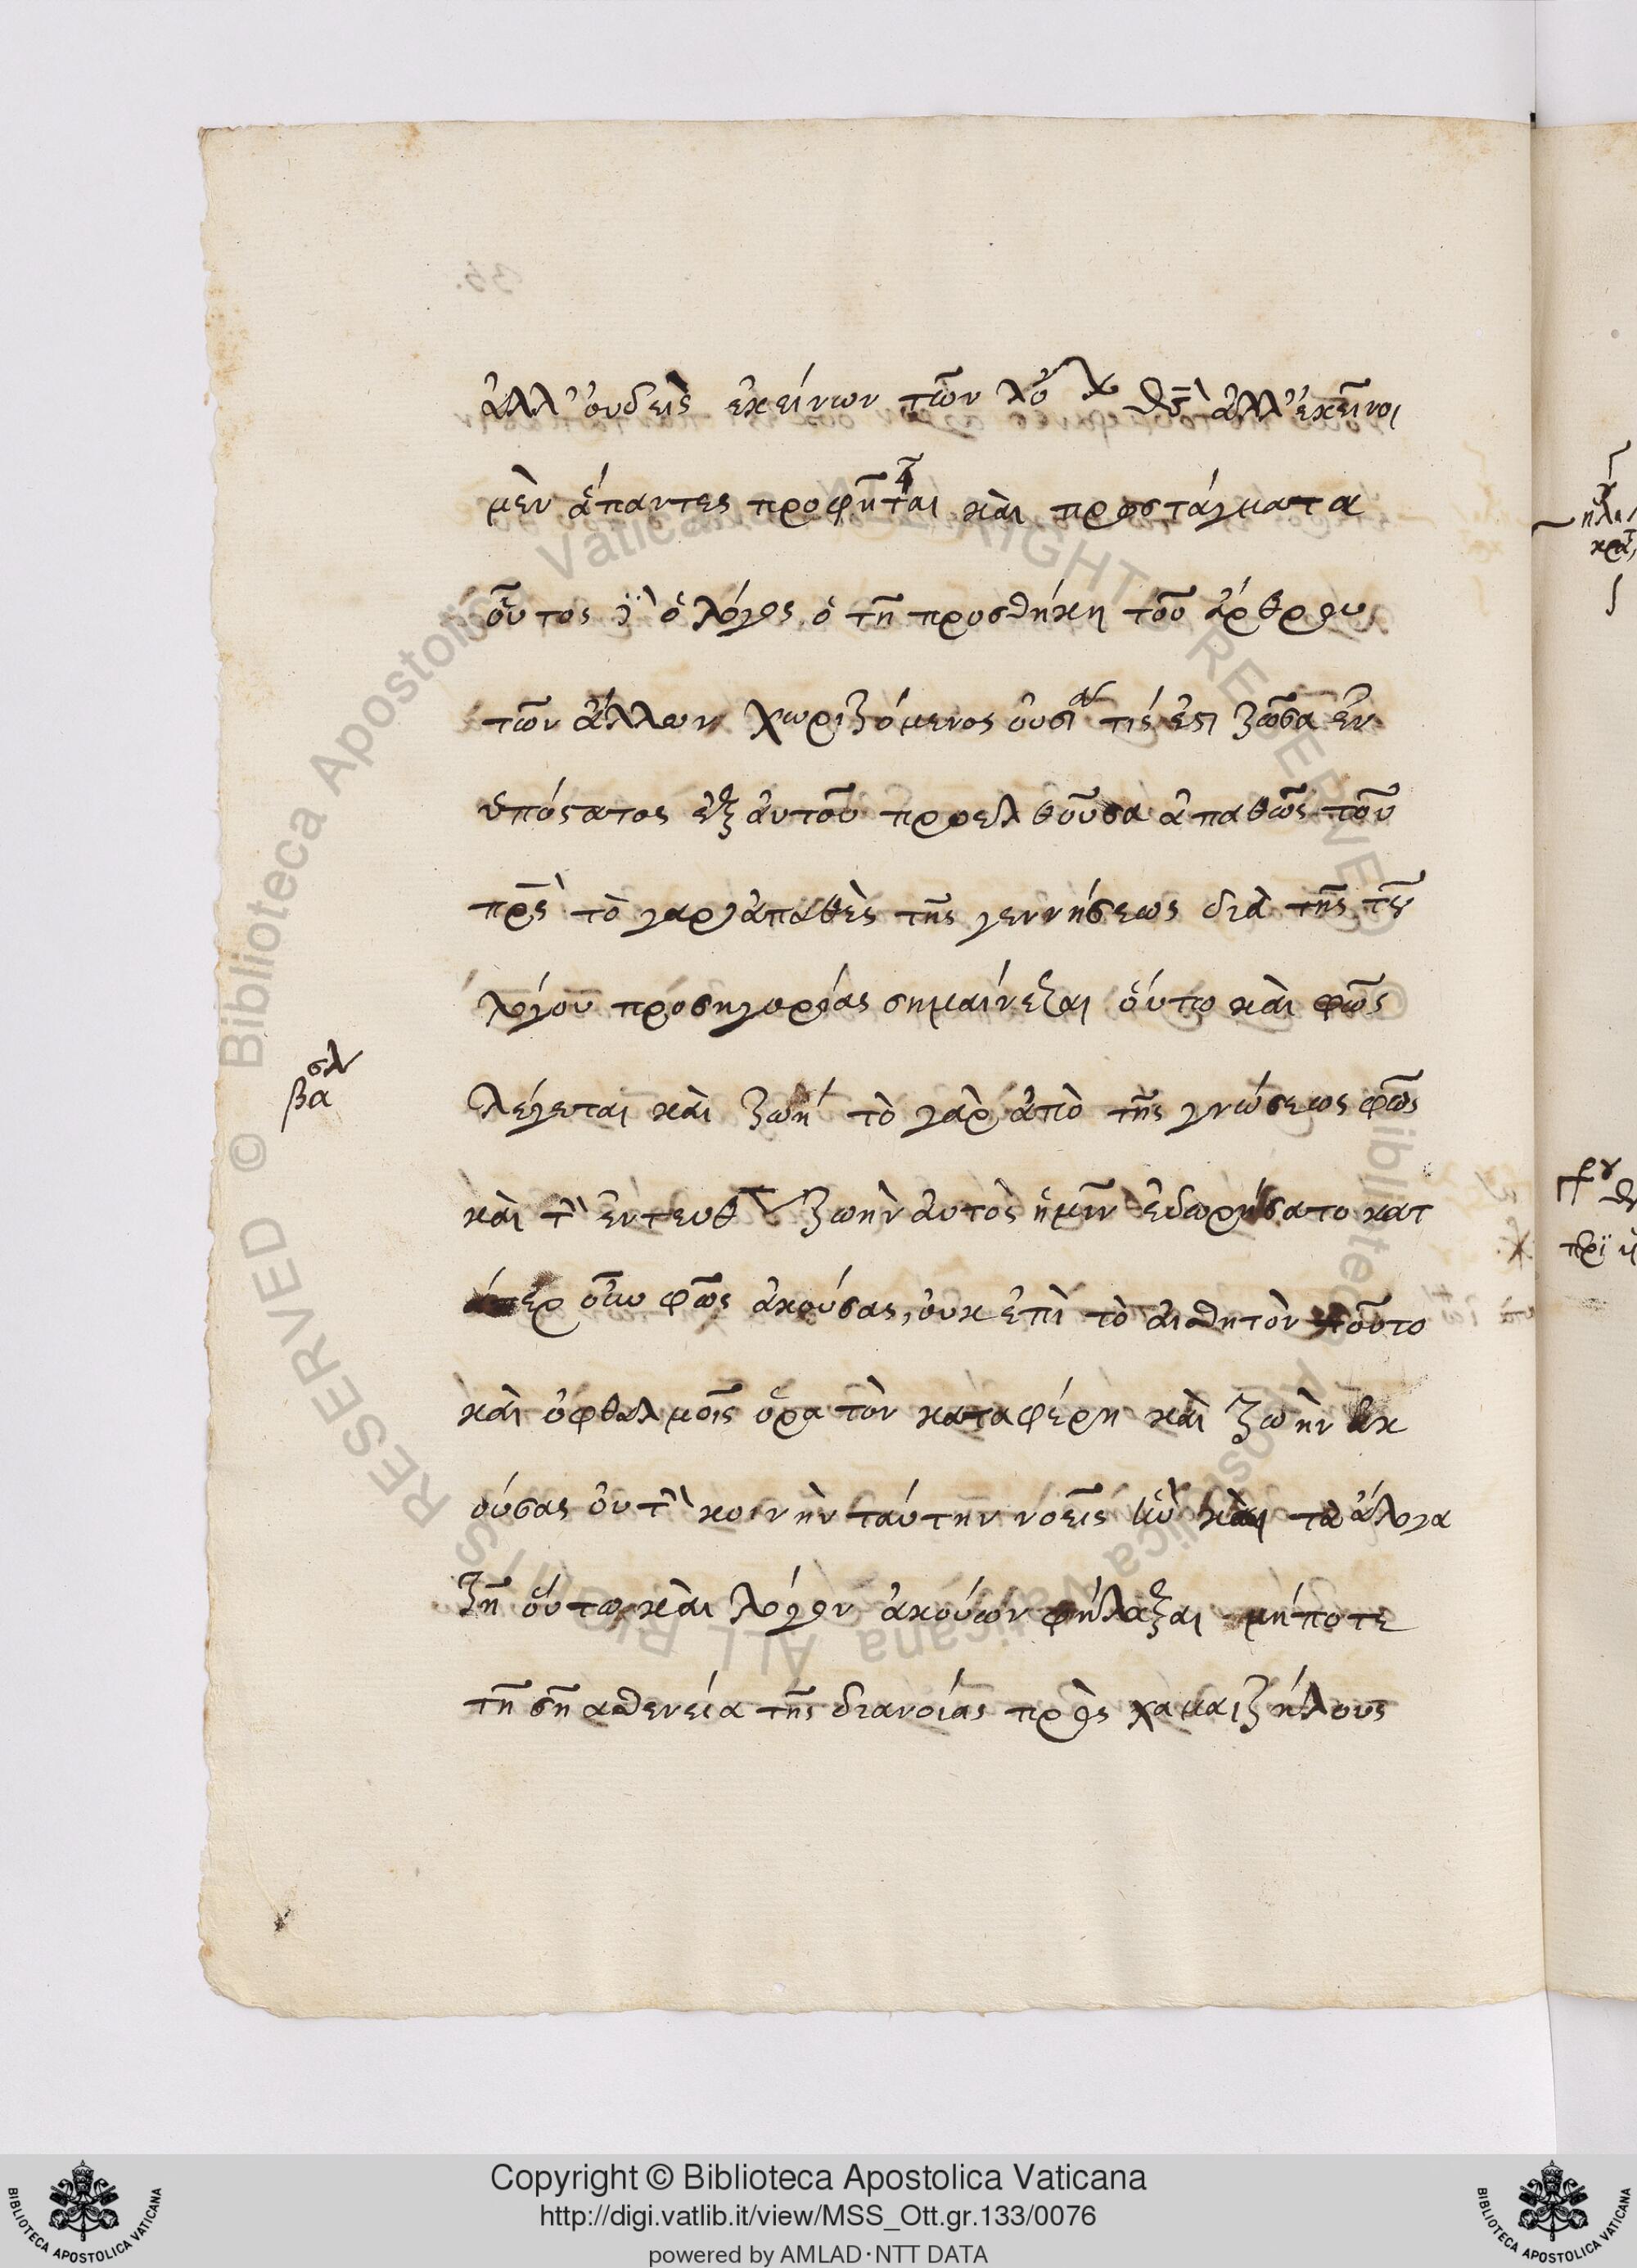 ἀλλ' ουδεὶς ἐκείνων τῶν λό θς ἀλλ' ἐκεῖνοι
μὲν ἅπαντες προφῆται καὶ προστάγματα
οὗτος ὁ λόγος ὁ τῆ προσθήκη τοῦ ἄρθρου
τῶν ἄλλων χωριζόμενος ουσία τίς ἐστι ζῶσα ἐν
υπόστατος ἐξ ἀυτοῦ προελθοῦσα ἀπαθῶς τοῦ
πρς τὸ γαρ ἀπαθὲς τῆς γεννήσεως διὰ τῆς τοῦ
λόγου προσηγορίας σημαίνεται ὅυτω καὶ φῶς
σλ
βα
λέγεται καὶ ζωή τὸ γὰρ ἀπὸ τῆς γνώσεως φῶς
καὶ τὴν ἐντευθεν ζωὴν ἀυτὸς ἡμῖν ἐδωρήσατο κατ
οὖν φῶς ἀκούσας, ὀυκ ἐπὶ τὸ ἀισθητὸν τοῦτο
καὶ ὀφθαλμοῖς ὁρατὸν καταφέρη καὶ ζωὴν ἀκ
ούσας ὀυ τὴν κοινὴν ταύτην νοεῖς ἣν καὶ τὰ ἄλογα
ζῆ ὅυτω καὶ λόγον ἀκούων φύλαξαι μήποτε
τῆ σῆ ασθενεία τῆς διανοίας πρὸς χαμαιζήλους
Copyright © Biblioteca Apostolica Vaticana
http://digi.vatlib.it/view/MSS_Ott.gr.133/0076
powered by AMLAD·NTT DATA